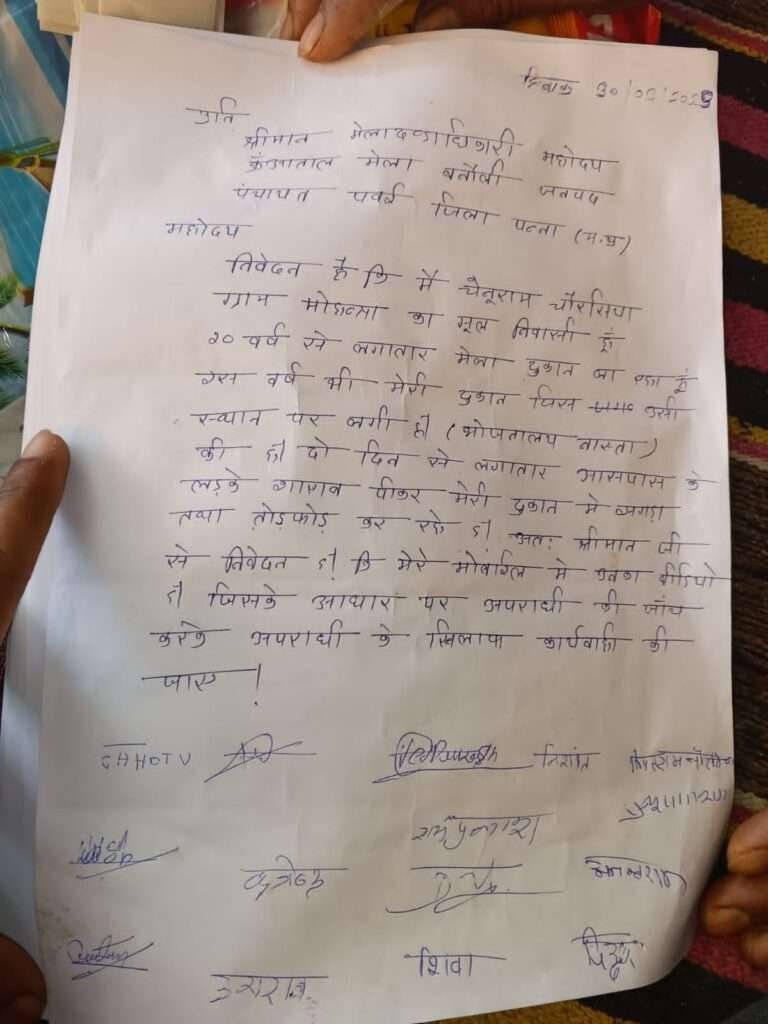 दिनांक 30/05/2025
प्रति
श्रीमान मेलादण्डाधिकारी महोदय
कुंआताल मेला बनौली जनपद
पंचायत पवई जिला पन्ना (म.प्र)
महोदय
निवेदन है कि मै चेतूराम चौरसिया
ग्राम मोहन्द्रा का मूल निवासी हूँ
20 वर्ष से लगातार मेला दुकान ला रहा हूं
इस वर्ष भी मेरी दुकान जिस उसी
स्थान पर लगी है। (भोजनालय नास्ता)
की है। दो दिन से लगातार आसपास के
लड़के शाराब पीकर मेरी दुकान मे झगड़ा
तथा तोड़फोड़ कर रहे है। अतः श्रीमान जी
से निवेदन है। कि मेरे मोबाईल मे उनका वीडियो
है। जिसके आधार पर अपराधी की जाँच
करके अपराधी के खिलाफ कार्यवाही की
जाए।
CHHOTU निशांत
रामप्रकाश
शिवा